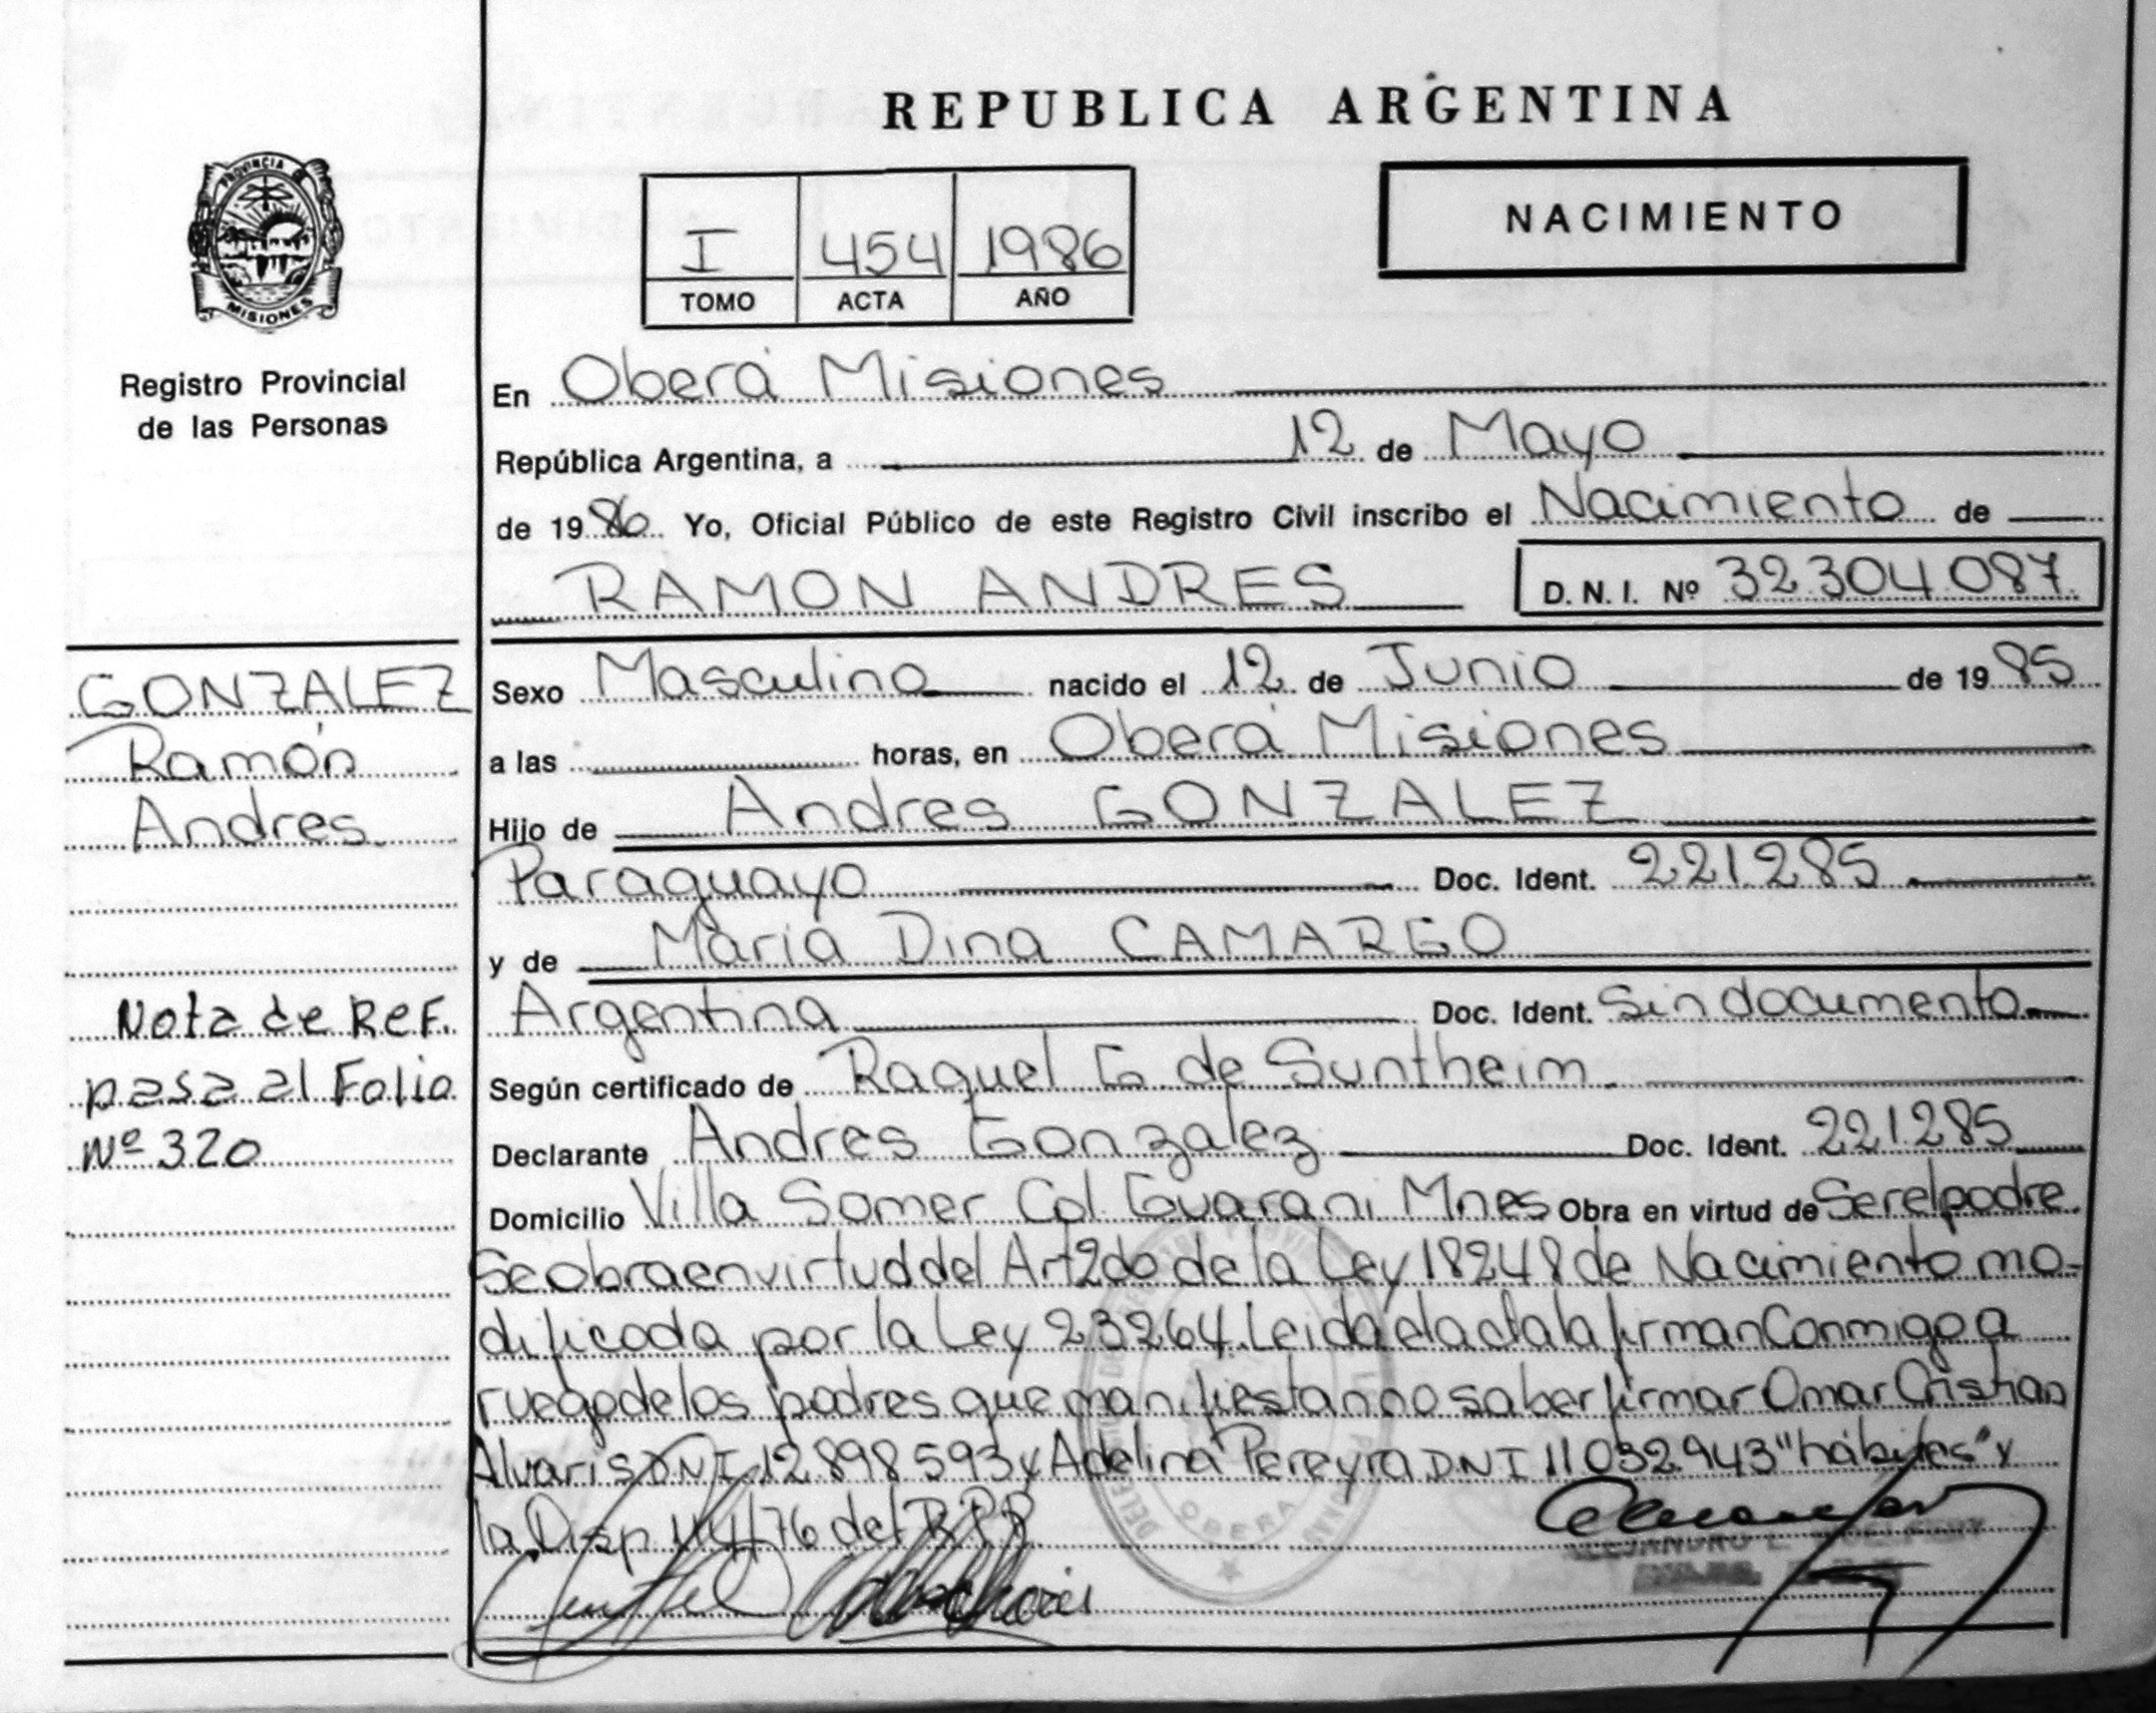 REPUBLICA ARGENTINA
PROVINCIA
MISIONES
Registro Provincial
de las Personas
NACIMIENTO
I 454 1986
TOMO ACTA AÑO
En Oberá Misiones
República Argentina, a 12 de Mayo
de 19 86 Yo, Oficial Público de este Registro Civil inscribo el Nacimiento de
RAMON ANDRES D. N. I. Nº 32.304.087.
GONZALEZ
Ramón
Andres
Nota de Ref.
pasa al Folio
Nº 320
Sexo Masculino nacido el 12 de Junio de 19 85
a las horas, en Oberá Misiones
Hijo de Andres GONZALEZ
Paraguayo Doc. Ident. 221.285
y de Maria Dina CAMARGO
Argentina Doc. Ident. Sin documento
Según certificado de Raquel G de Suntheim
Declarante Andres Gonzalez Doc. Ident. 221.285
Domicilio Villa Somer Col. Guarani Mnes Obra en virtud de Ser el padre
Se obra en virtud del Art 2do de la Ley 18248 de Nacimiento mo-
dificada por la Ley 23264. Leida el acta la firman Conmigo a
ruego de los padres que manifiestan no saber firmar Omar Cristian
Alvaris DNI 12.898.593 y Adelina Pereyra DNI 11032.943 "hábiles" y
la Disp. 144/76 del R.P.P.
OBERA